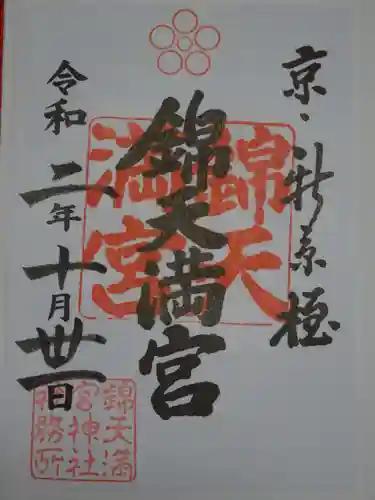 京・新京極
錦天満宮
錦天満宮
令和二年十月卅一日
錦天満
宮神社
社務所